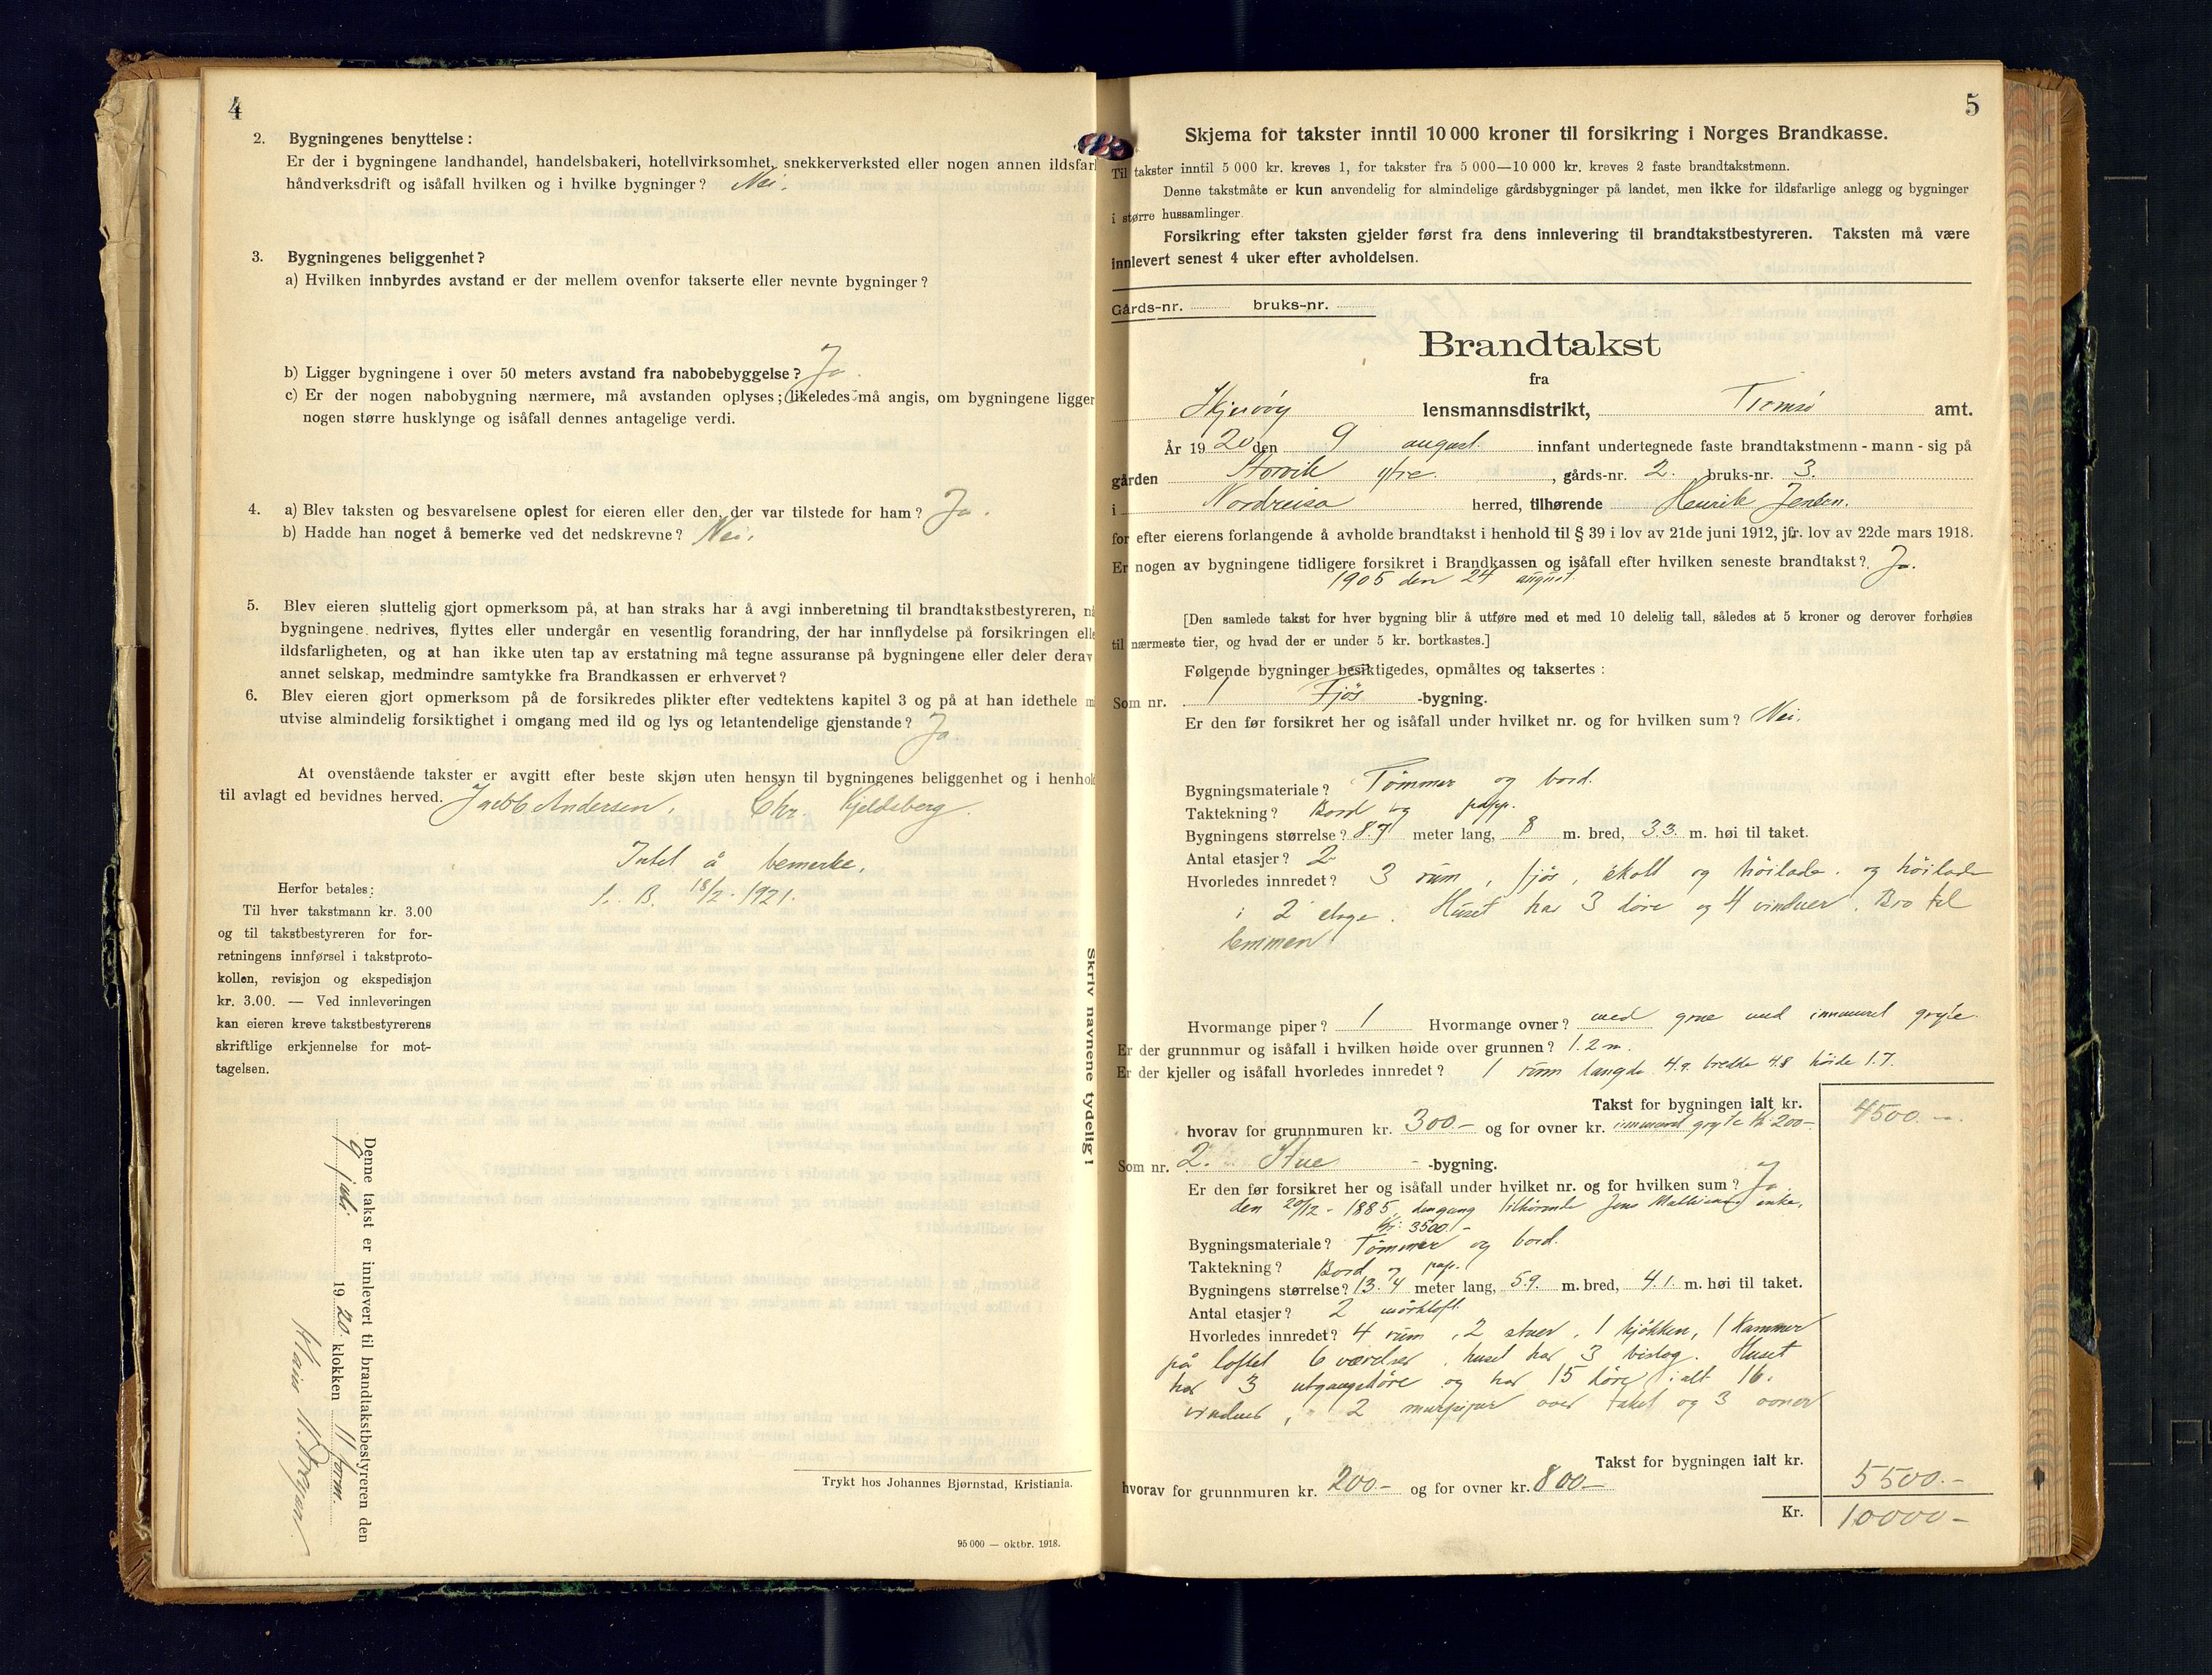 4
2. Bygningenes benyttelse:
Er der i bygningene landhandel, handelsbakeri, hotellvirksomhet, snekkerverksted eller nogen annen ildsfarl
håndverksdrift og isåfall hvilken og i hvilke bygninger? Nei.
3. Bygningenes beliggenhet?
a) Hvilken innbyrdes avstand er der mellem ovenfor takserte eller nevnte bygninger?
b) Ligger bygningene i over 50 meters avstand fra nabobebyggelse? Ja.
c) Er der nogen nabobygning nærmere, må avstanden oplyses; likeledes må angis, om bygningene ligger
nogen større husklynge og isåfall dennes antagelige verdi.
4. a) Blev taksten og besvarelsene oplest for eieren eller den, der var tilstede for ham? Ja.
b) Hadde han noget å bemerke ved det nedskrevne? Nei.
5. Blev eieren sluttelig gjort opmerksom på, at han straks har å avgi innberetning til brandtakstbestyreren, nå
bygningene nedrives, flyttes eller undergår en vesentlig forandring, der har innflydelse på forsikringen elle
ildsfarligheten, og at han ikke uten tap av erstatning må tegne assuranse på bygningene eller deler derav
annet selskap, medmindre samtykke fra Brandkassen er erhvervet?
6. Blev eieren gjort opmerksom på de forsikredes plikter efter vedtektens kapitel 3 og på at han idethele m
utvise almindelig forsiktighet i omgang med ild og lys og letantendelige gjenstande? Ja
At ovenstående takster er avgitt efter beste skjøn uten hensyn til bygningenes beliggenhet og i henhol
til avlagt ed bevidnes herved. Andersen. Chr. Kjeldsberg.
Intet å bemerke.
18/2 1921.
Herfor betales:
Til hver takstmann kr. 3.00
og til takstbestyreren for for-
retningens innførsel i takstproto-
kollen, revisjon og ekspedisjon
kr. 3.00. — Ved innleveringen
kan eieren kreve takstbestyrerens
skriftlige erkjennelse for mot-
tagelsen.
Denne takst er innlevert til brandtakstbestyreren den
9 juli 1920. klokken 11 form.
Skriv navnene tydelig!
Trykt hos Johannes Bjørnstad, Kristiania.
95 000 — oktbr. 1918.
5
Skjema for takster inntil 10 000 kroner til forsikring i Norges Brandkasse.
Til takster inntil 5 000 kr. kreves 1, for takster fra 5 000—10 000 kr. kreves 2 faste brandtakstmenn.
Denne takstmåte er kun anvendelig for almindelige gårdsbygninger på landet, men ikke for ildsfarlige anlegg og bygninger
i større hussamlinger.
Forsikring efter taksten gjelder først fra dens innlevering til brandtakstbestyreren. Taksten må være
innlevert senest 4 uker efter avholdelsen.
Gårds-nr. bruks-nr.
Brandtakst
fra
Skjervøy lensmannsdistrikt, Tromsø amt.
År 1920 den 9 august. innfant undertegnede faste brandtakstmenn - mann - sig på
gården Storvik ytre. , gårds-nr. 2. bruks-nr. 3.
i Nordreisa herred, tilhørende Henrik Jensen.
for efter eierens forlangende å avholde brandtakst i henhold til § 39 i lov av 21de juni 1912, jfr. lov av 22de mars 1918.
Er nogen av bygningene tidligere forsikret i Brandkassen og isåfall efter hvilken seneste brandtakst? Ja.
1905 den 24 august.
[Den samlede takst for hver bygning blir å utføre med et med 10 delelig tall, således at 5 kroner og derover forhøies
til nærmeste tier, og hvad der er under 5 kr. bortkastes.]
Følgende bygninger besiktigedes, opmåltes og taksertes:
Som nr. 1 Fjøs -bygning.
Er den før forsikret her og isåfall under hvilket nr. og for hvilken sum? Nei.
Bygningsmateriale? Tømmer og bord.
Taktekning? Bord og papp.
Bygningens størrelse? 8.7 meter lang, 8 m. bred, 3.3. m. høi til taket.
Antal etasjer? 2
Hvorledes innredet? 3 rum, fjøs, skott og høilade. og høilade
i 2 etage. Huset har 3 døre og 4 vinduer. Bro til
lemmen
Hvormange piper? 1 Hvormange ovner? med grue med innmuret gryte.
Er der grunnmur og isåfall i hvilken høide over grunnen? 1.2 m.
Er der kjeller og isåfall hvorledes innredet? 1 rum længde 4.9. bredde 4.8 høide 1.7.
Takst for bygningen ialt kr. 4500.—
hvorav for grunnmuren kr. 300.— og for ovner kr. innmuret gryte kr. 200—
Som nr. 2. Stue -bygning.
Er den før forsikret her og isåfall under hvilket nr. og for hvilken sum? Ja.
den 29/12 - 1885, dengang tilhørende Jens enke.
kr. 3500.—
Bygningsmateriale? Tømmer og bord.
Taktekning? Bord og pap.
Bygningens størrelse? 13.4 meter lang, 5.9. m. bred, 4.1. m. høi til taket.
Antal etasjer? 2 mørkloft.
Hvorledes innredet? 4 rum, 2 stuer, 1 kjøkken, 1 kammer
på loftet 6 værelser, huset har 3 bislog. Huset
har 3 utgangsdøre og har 15 døre ialt 16.
vinduer, 2 murpiper over taket og 3 ovner
Takst for bygningen ialt kr. 5500.—
hvorav for grunnmuren kr. 200.— og for ovner kr. 800—
Kr. 10000—